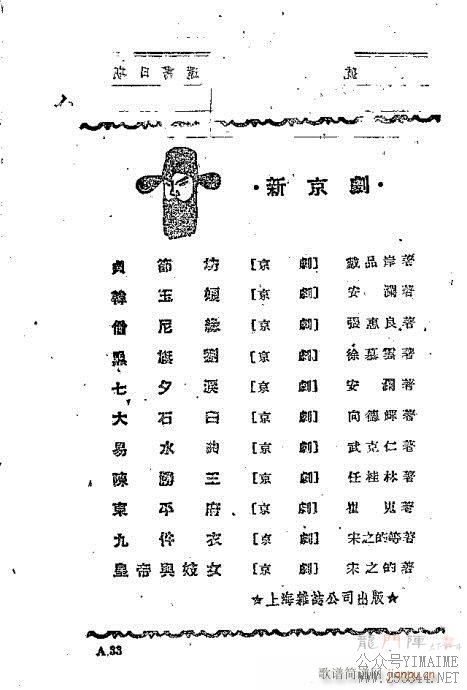 ·新京劇·
貞節坊 [京劇] 戴品岸著
韓玉娘 [京劇] 安瀾著
僧尼緣 [京劇] 張惠良著
黑旗劉 [京劇] 徐慕雲著
七夕淚 [京劇] 安瀾著
大石臼 [京劇] 向德輝著
易水曲 [京劇] 武克仁著
陳勝王 [京劇] 任桂林著
東平府 [京劇] 崔嵬著
九件衣 [京劇] 宋之的等著
皇帝與妓女 [京劇] 宋之的著
★上海雜誌公司出版★
A.33
歌谱简谱网
公众号YIMAIME